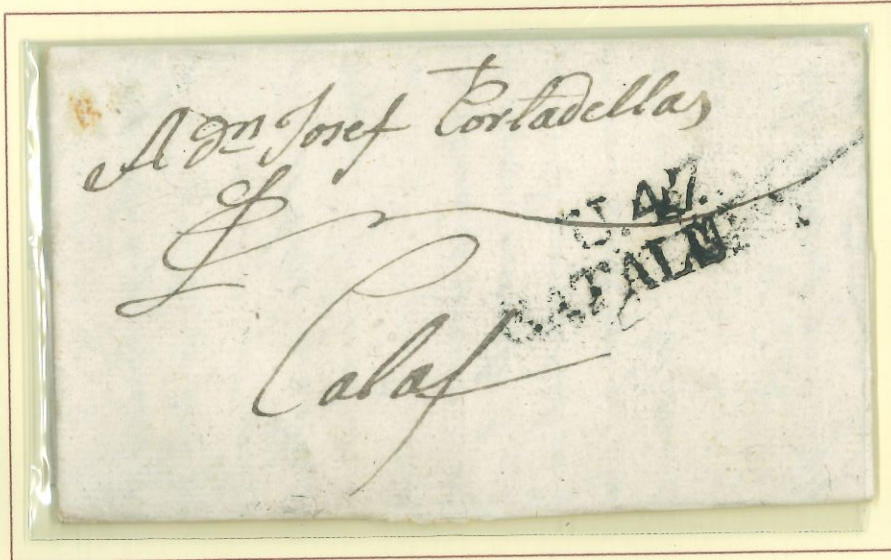 A Dn Josef Cortadellas
U.47.
CATALUÑA
Calaf